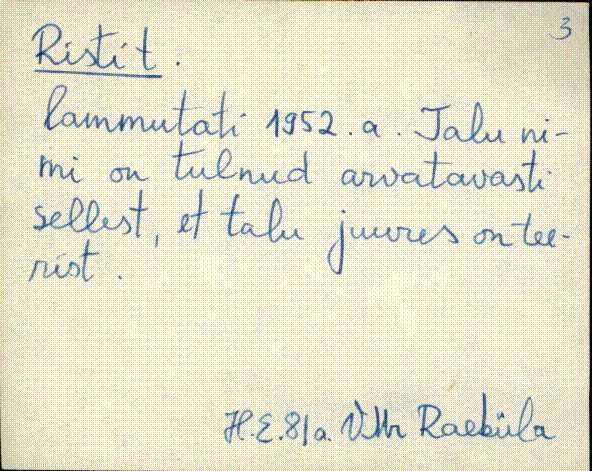 3
Risti t.
lammutati 1952. a. Talu ni-
mi on tulnud arvatavasti
sellest, et talu juures on tee-
rist.
H.E. 81a. Raeküla